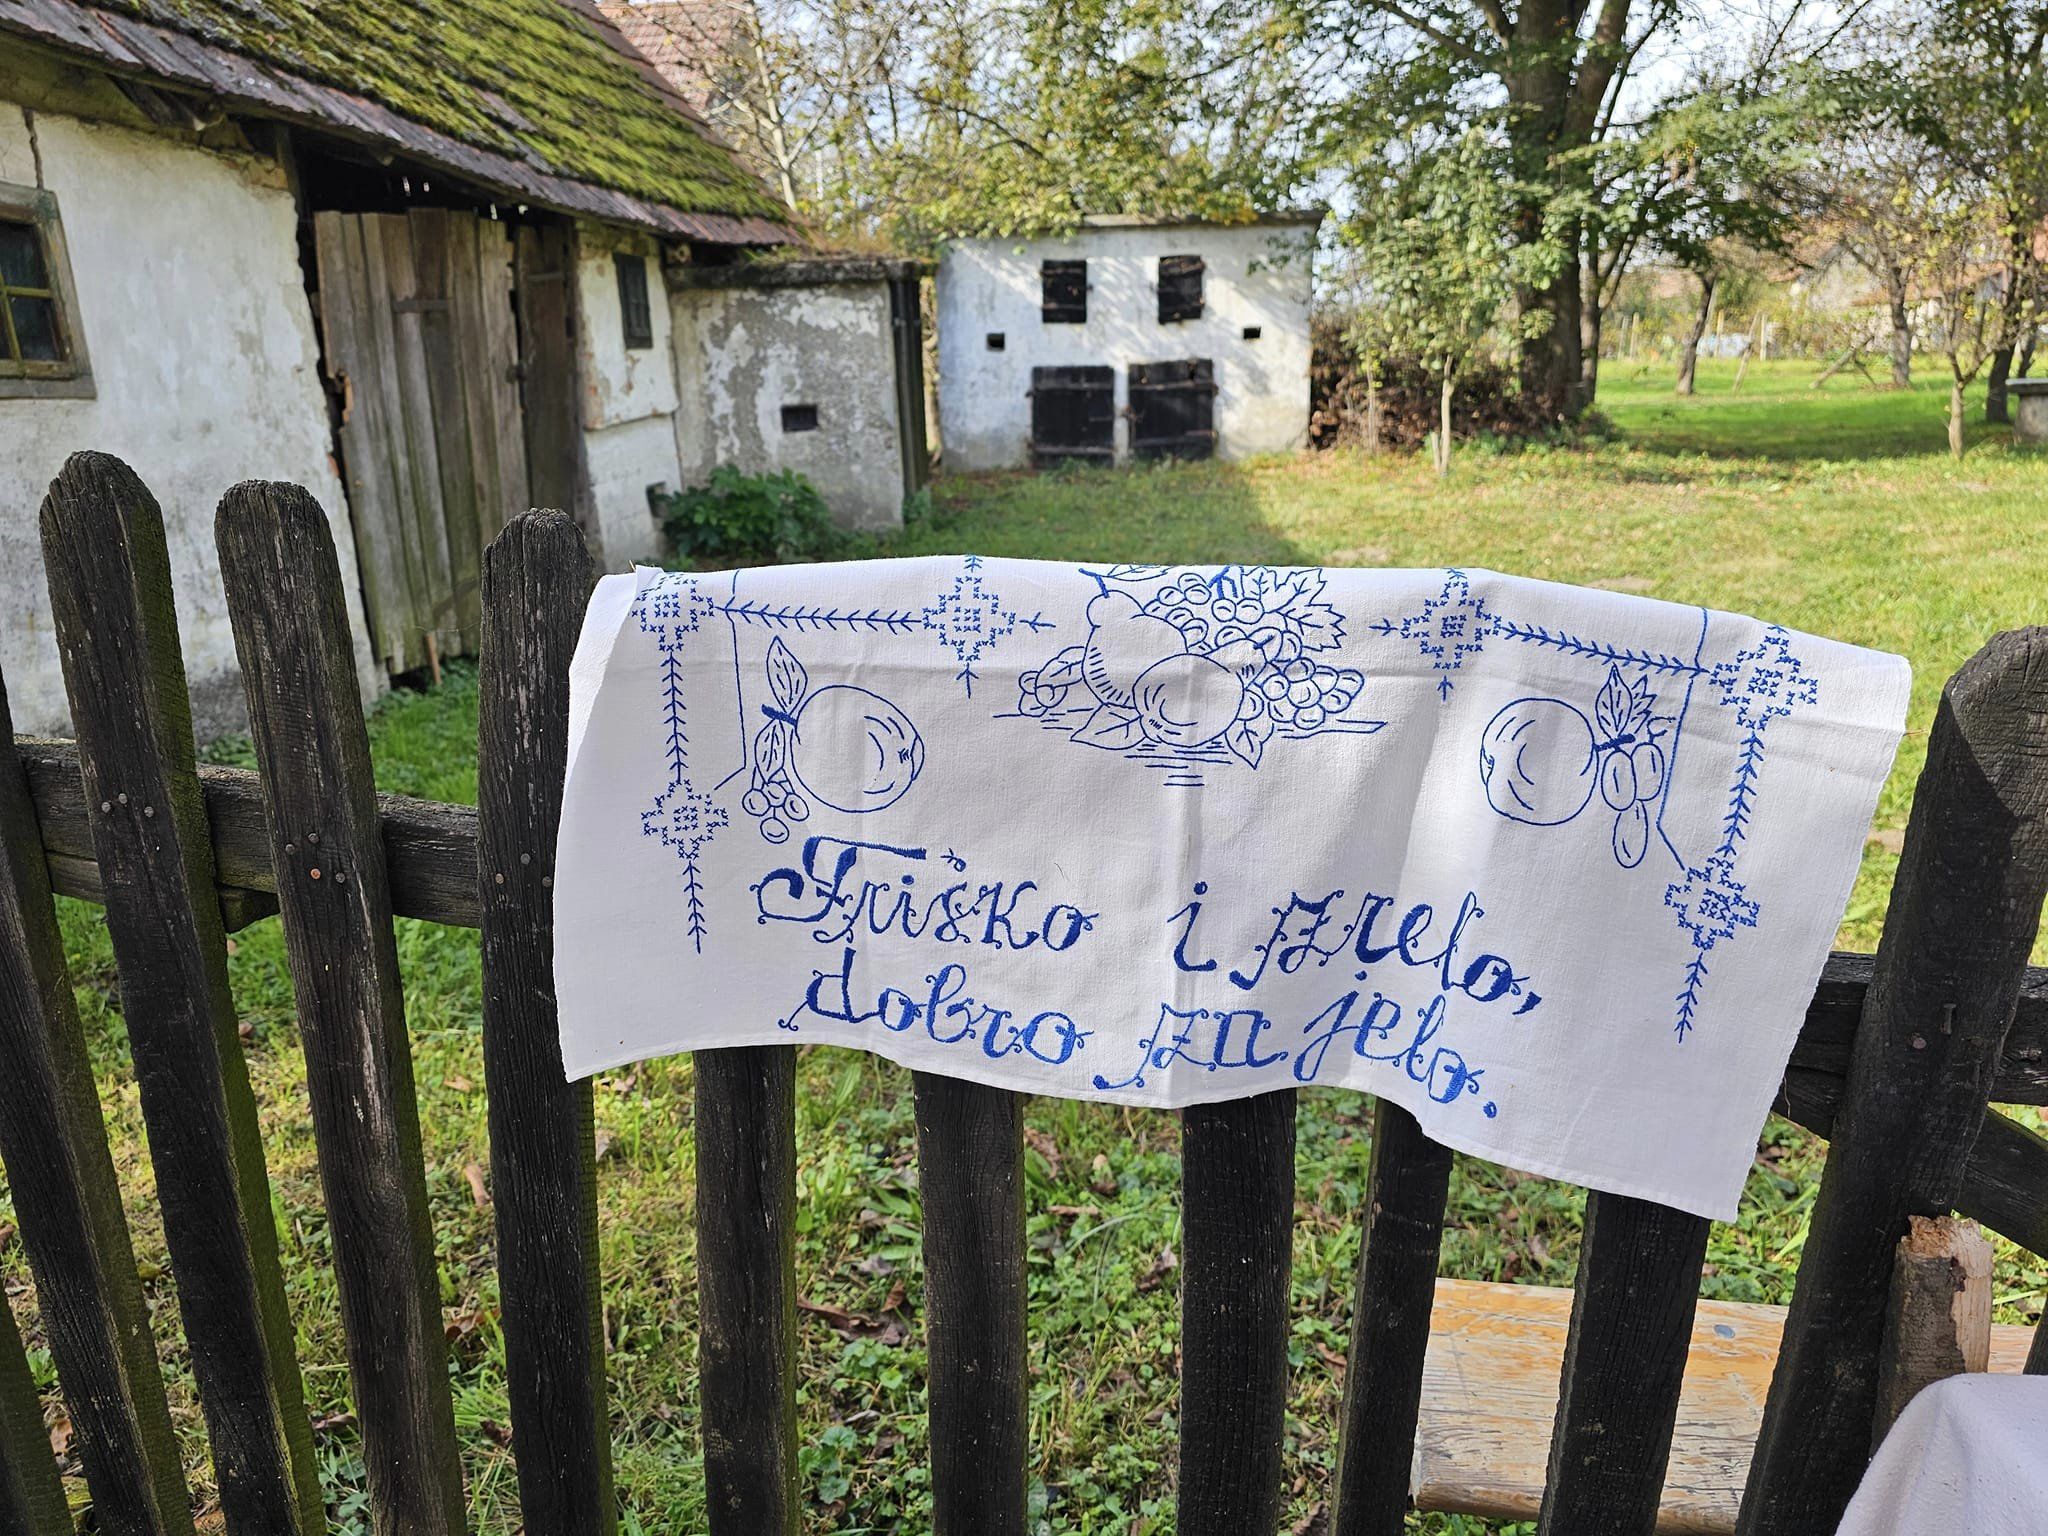 Friško i zrelo,
dobro za jelo.